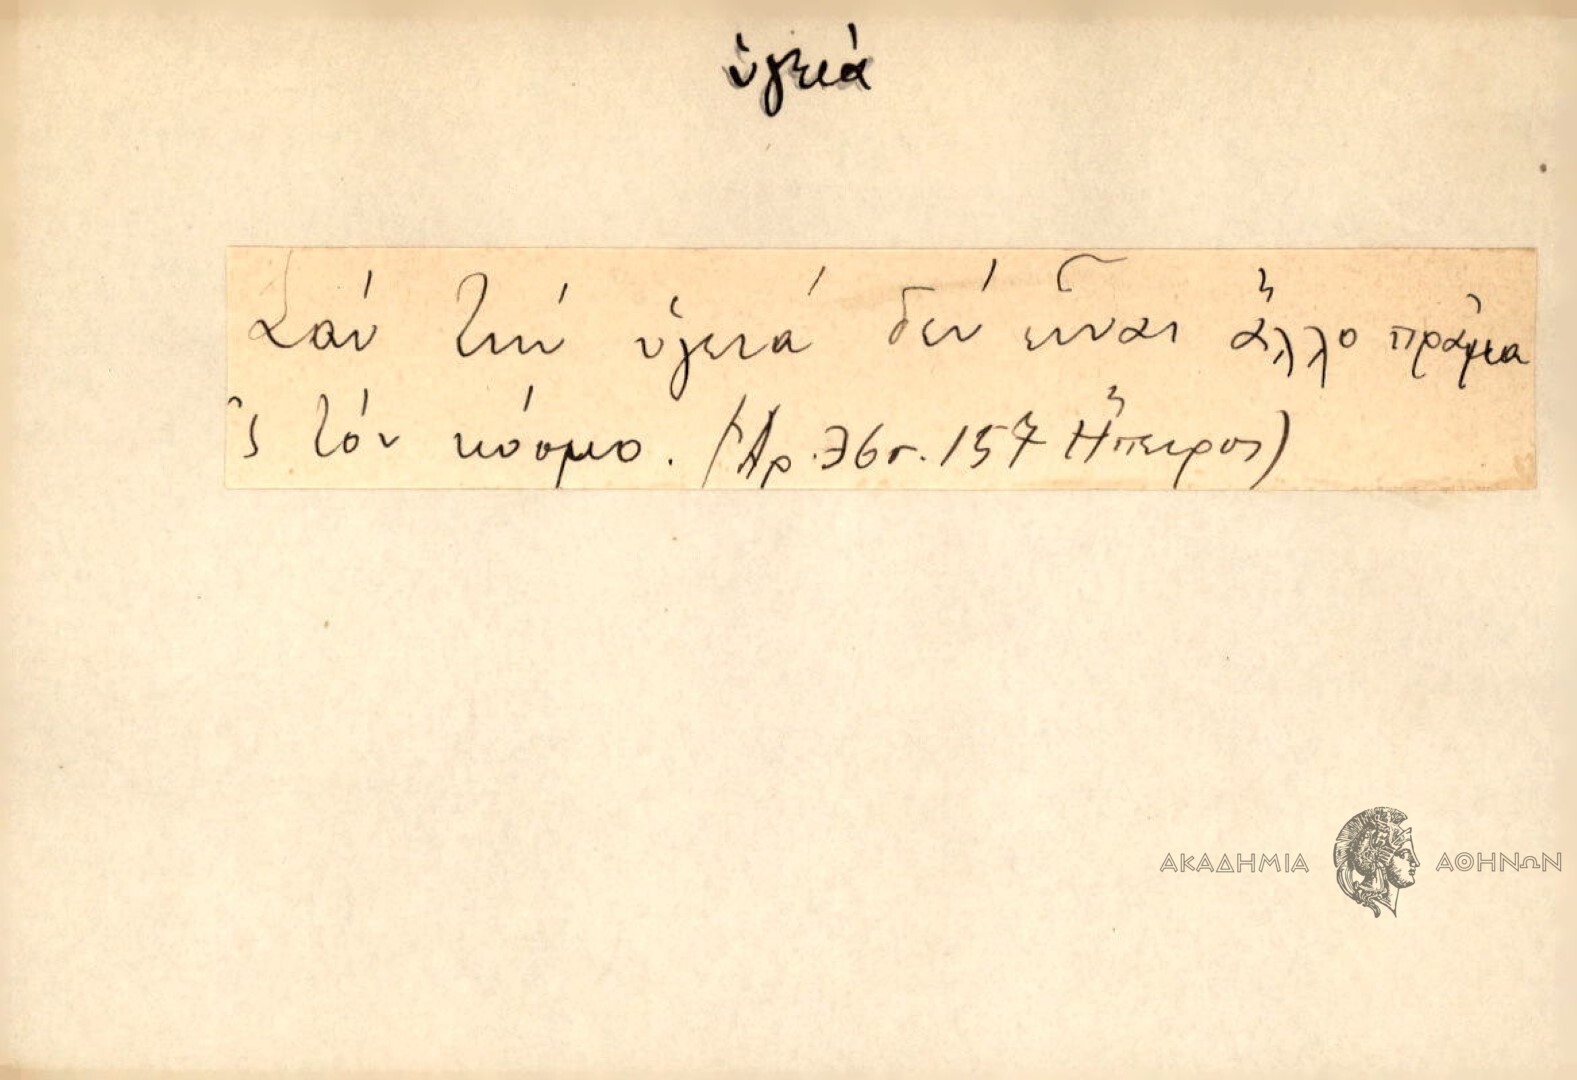 ὑγειά
Σάν τήν ὑγειά δέν εἶναι ἄλλο πρᾶμα
ς τόν κόσμο. (Ἀρ. 36 σ. 157 Ἤπειρος)
ΑΚΑΔΗΜΙΑ ΑΘΗΝΩΝ